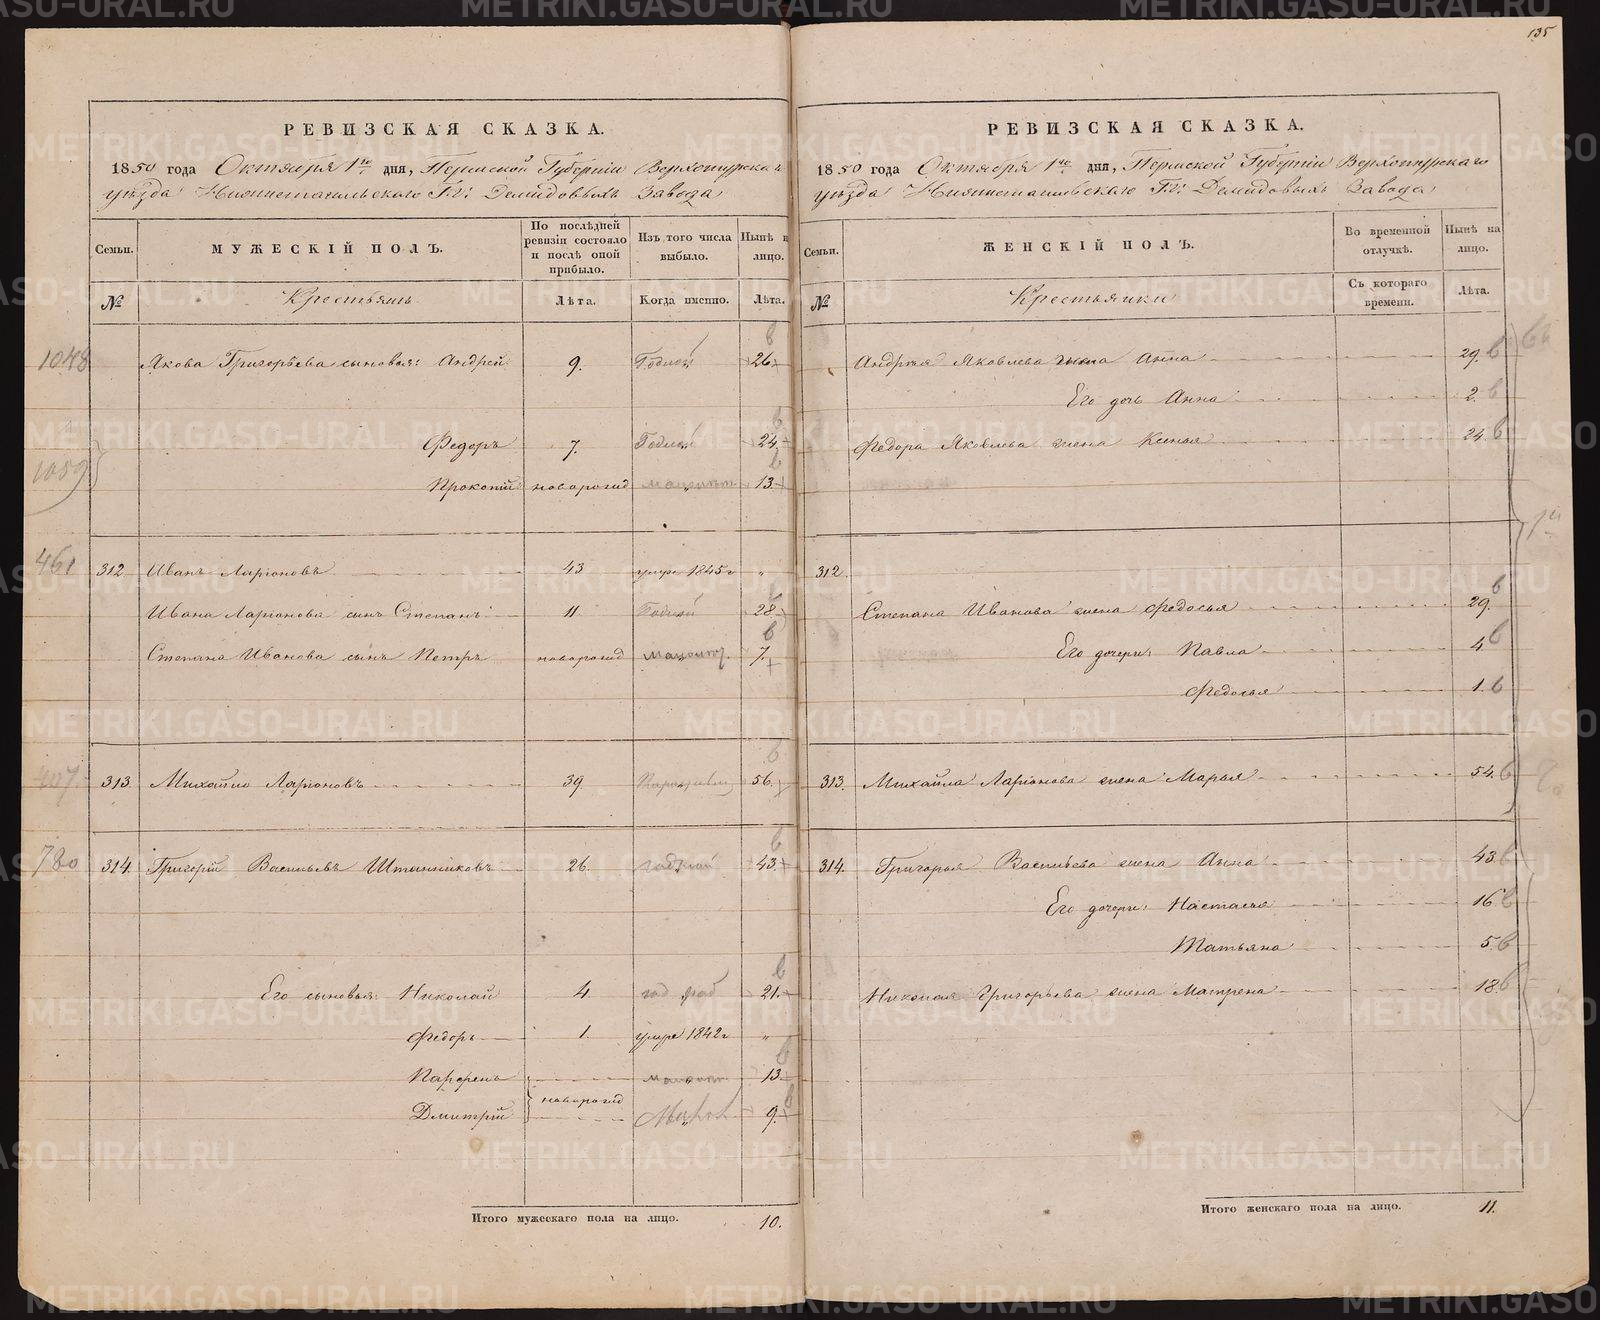 135
РЕВИЗСКАЯ СКАЗКА.
1850 года Октября 1го дня, Пермской Губерніи Верхотурскаго
уѣзда Нижнетагильскаго Г.г: Демидовыхъ Завода
Семьи. МУЖЕСКІЙ ПОЛЪ. По послѣдней ревизіи состояло и послѣ оной прибыло. Изъ того числа выбыло. Нынѣ н лицо.
№ Крестьянъ Лѣта. Когда именно. Лѣта.
1048 Якова Григорьева сыновья: Андрей 9. Годной 26
Федоръ 7. Годной 24
1059
Прокопій новорожд 13
461 312 Иванъ Ларіоновъ 43 умре 1845г „
Ивана Ларіонова сынъ Степанъ 11 Годной 28
Степана Иванова сынъ Петръ новорожд малолют. 7.
313 Михайло Ларіоновъ 39 56.
780 314. Григорій Васильевъ Штанниковъ 26. годной 43.
Его сыновья: Николай 4. 21.
Федоръ 1. умре 1842г „
Парфенъ 13
новорожд
Дмитрій 9.
Итого мужескаго пола на лицо. 10.
РЕВИЗСКАЯ СКАЗКА.
1850 года Октября 1го дня, Пермской Губерніи Верхотурскаго
уѣзда Нижнетагильскаго Г.г: Демидовыхъ Завода
Семьи. ЖЕНСКІЙ ПОЛЪ. Во временной отлучкѣ. Нынѣ на лицо.
№ Крестьянки Съ котораго времени. Лѣта.
Андрея Яковлева жена Анна 29.
Его дочь Анна 2.
Федора Яковлева жена Ксенья 24.
312.
Степана Иванова жена Федосья 29.
Его дочери: Павла 4
Федосья 1.
313. Михайла Ларіонова жена Марья 54.
314. Григорья Васильева жена Анна 43.
Его дочери: Настасья 16
Татьяна 5.
Николая Григорьева жена Матрена 18.
Итого женскаго пола на лицо. 11.
METRIKI.GASO-URAL.RU